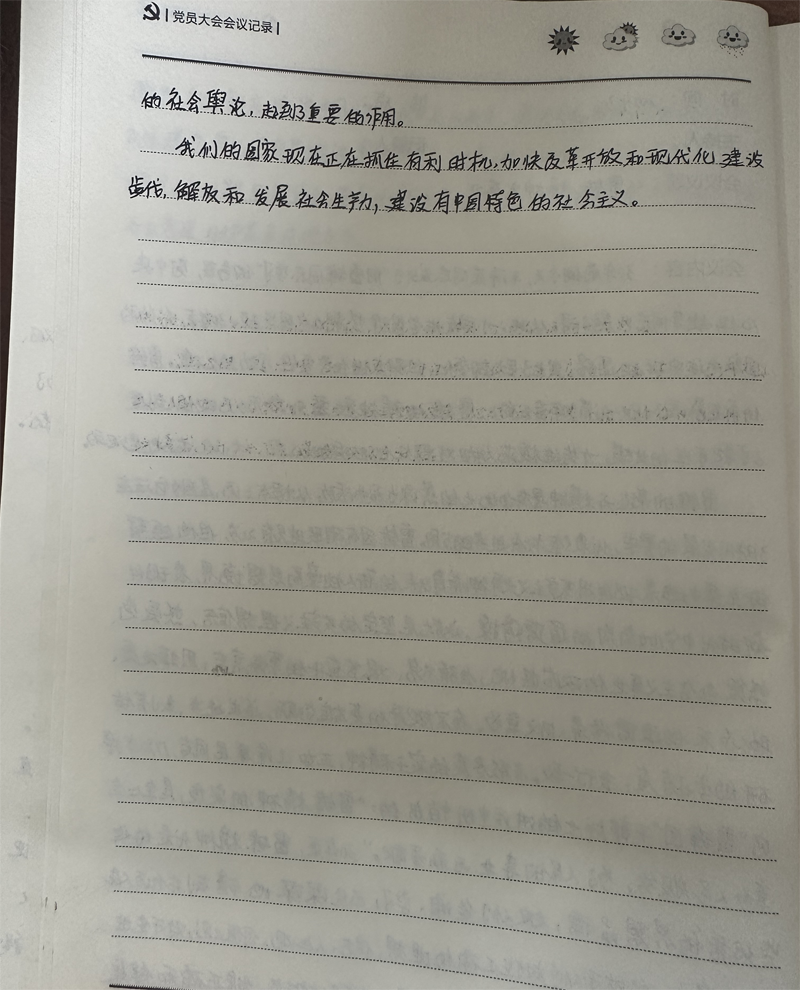 党员大会会议记录
的社会舆论，起到了重要的作用。
我们的国家现在正在抓住有利时机，加快改革开放和现代化建设
步伐，解放和发展社会生产力，建设有中国特色的社会主义。